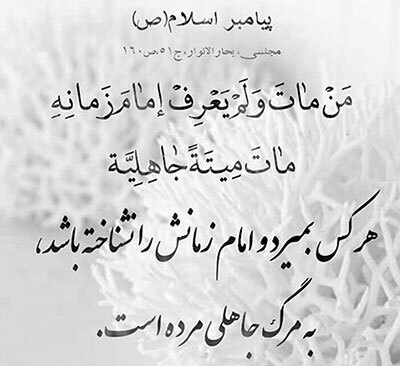 پیامبر اسلام(ص)
مجلسی، بحارالانوار، ج۵۱،ص۱۶۰
مَنْ مٰاتَ وَلَمْ یَعْرِفْ إمٰامَ زَمٰانِهِ
مٰاتَ مِیتَةً جٰاهِلِیَّة
هر کس بمیرد و امام زمانش را نشناخته باشد،
به مرگ جاهلی مرده است.